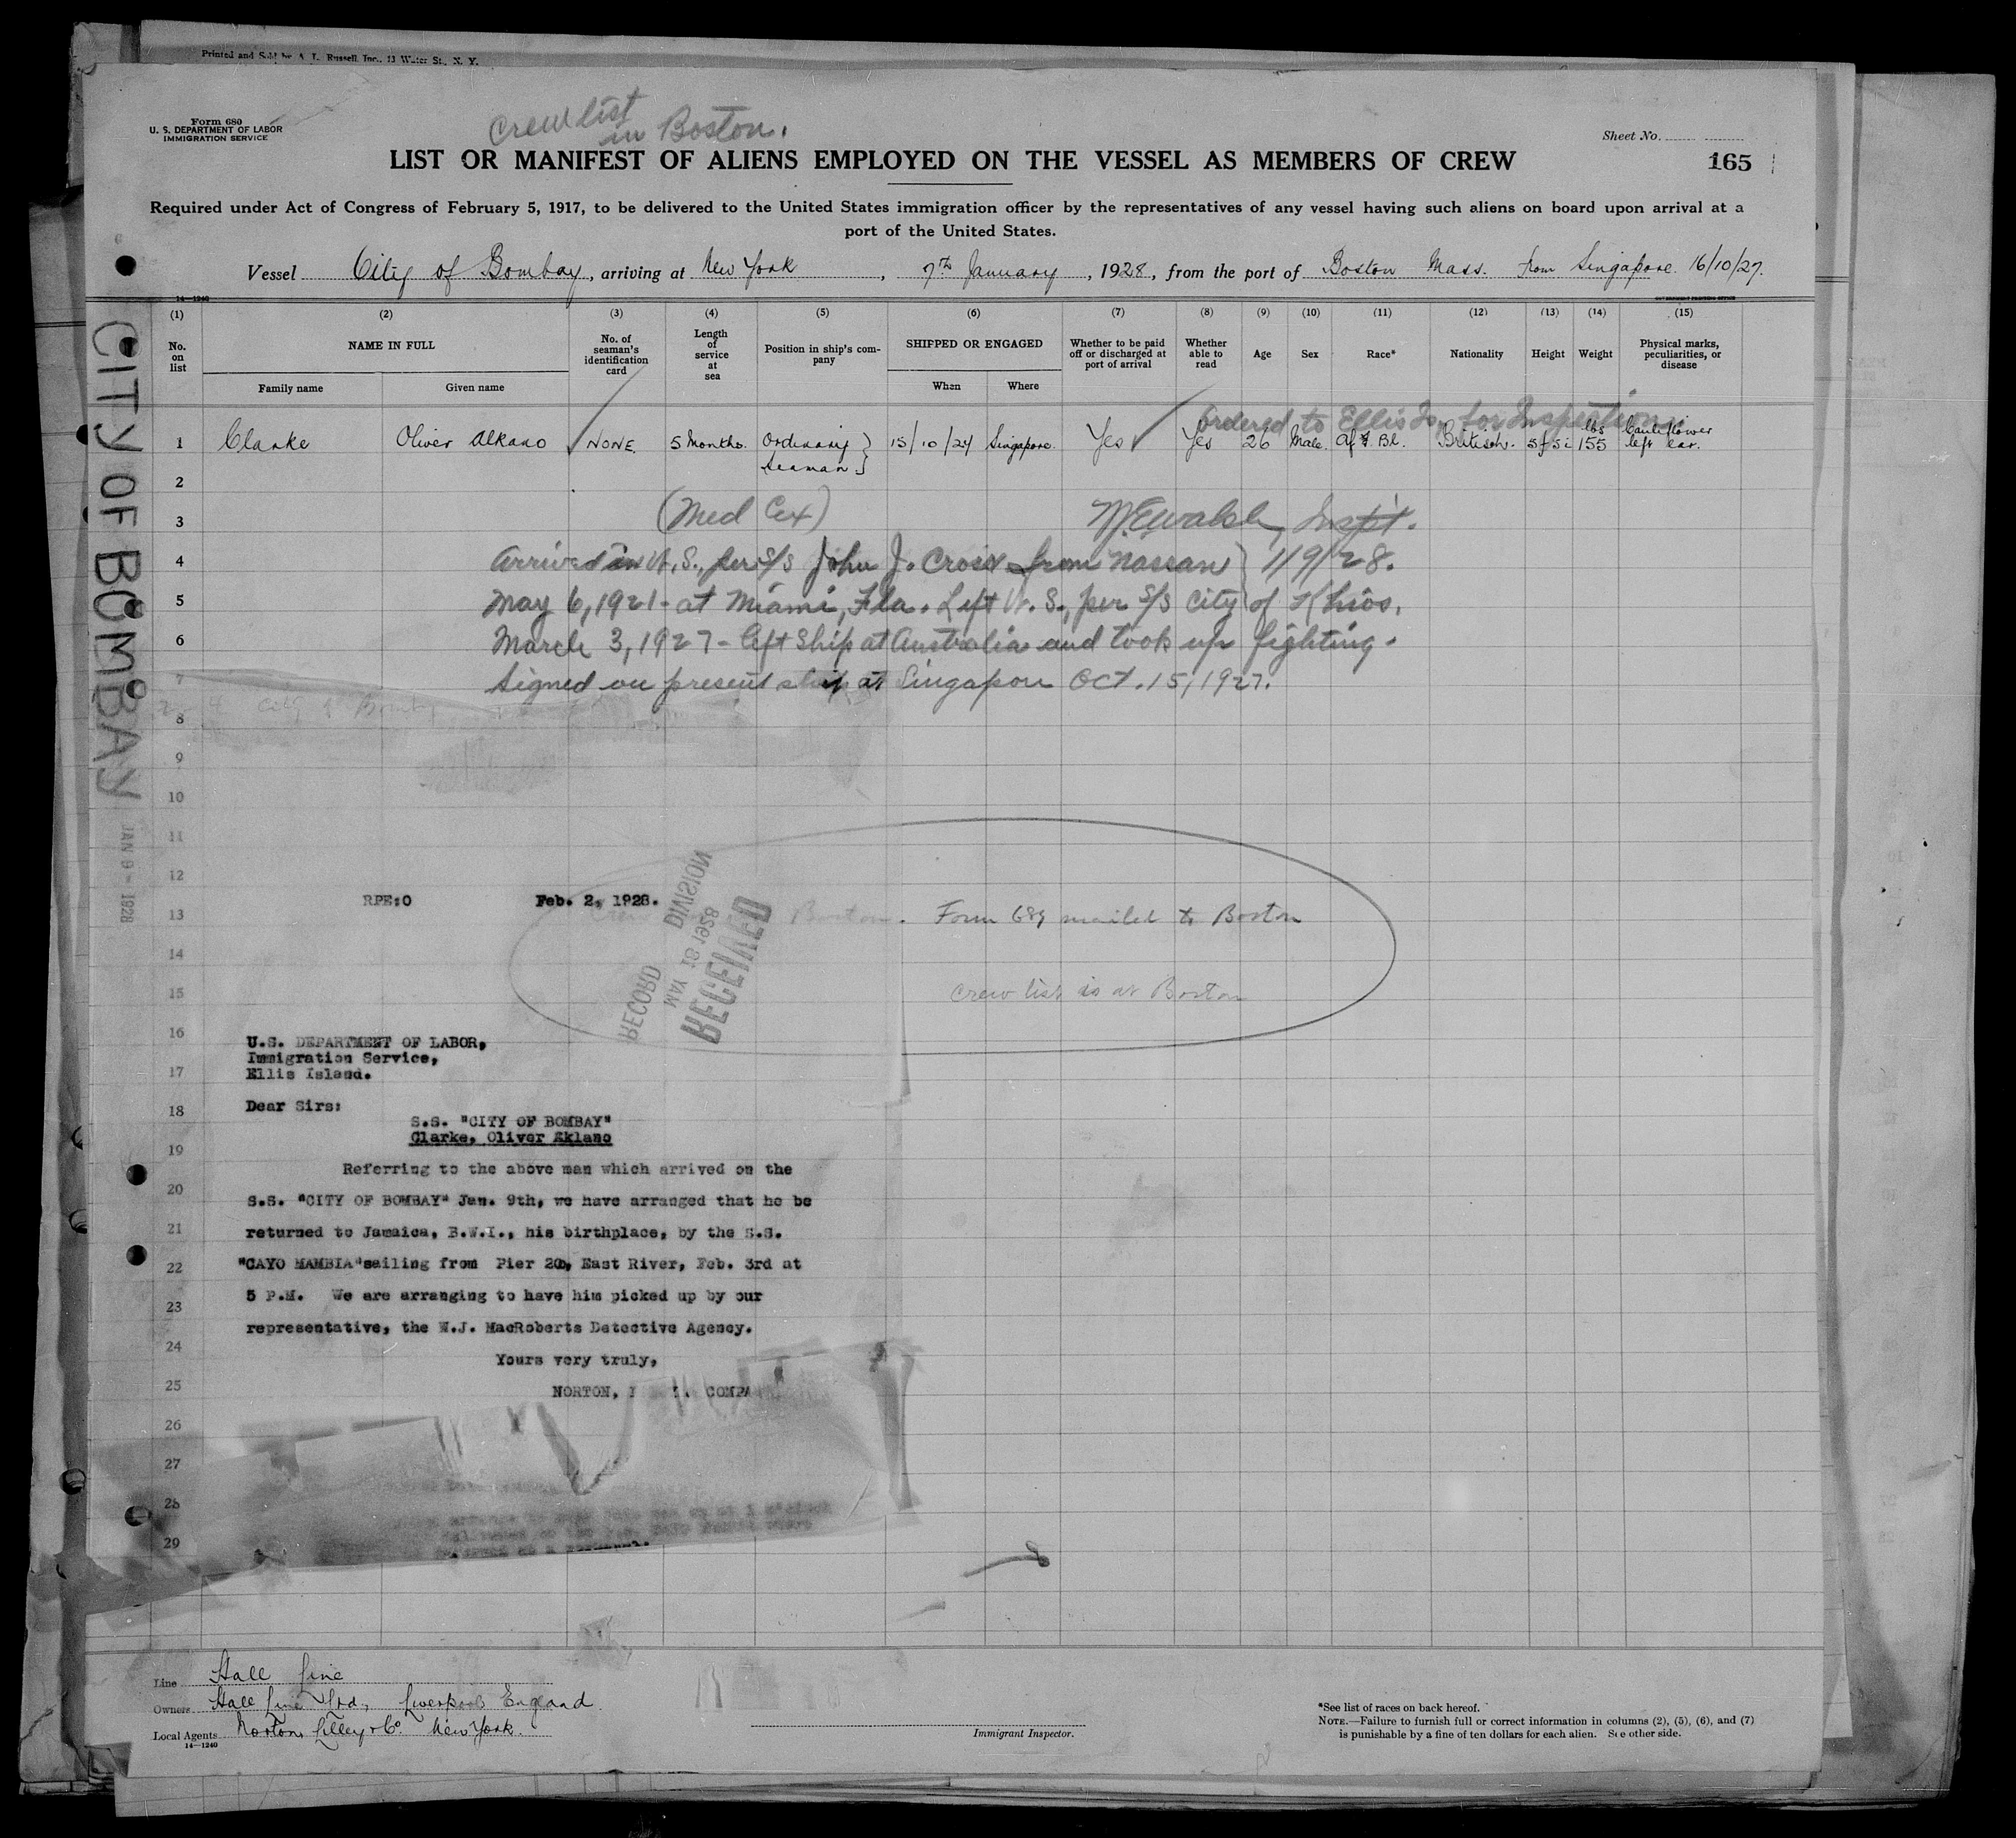 Printed and Sold by A. L. Russell, Inc., 11 Water St., N. Y.
Form 680
U. S. DEPARTMENT OF LABOR
IMMIGRATION SERVICE
Crew list
in Boston.
Sheet No.
LIST OR MANIFEST OF ALIENS EMPLOYED ON THE VESSEL AS MEMBERS OF CREW
165
Required under Act of Congress of February 5, 1917, to be delivered to the United States immigration officer by the representatives of any vessel having such aliens on board upon arrival at a
port of the United States.
Vessel City of Bombay, arriving at New York, 7th January, 1928, from the port of Boston Mass. from Singapore. 16/10/27.
14—1240
GOVERNMENT PRINTING OFFICE
CITY OF BOMBAY
JAN 9 - 1928
(1) (2) (3) (4) (5) (6) (7) (8) (9) (10) (11) (12) (13) (14) (15)
No. on list
NAME IN FULL
Family name
Given name
No. of seaman's identification card
Length of service at sea
Position in ship's company
SHIPPED OR ENGAGED
When
Where
Whether to be paid off or discharged at port of arrival
Whether able to read
Age
Sex
Race*
Nationality
Height
Weight
Physical marks, peculiarities, or disease
Ordered to Ellis Is. for Inspection
1 Clarke Oliver Alkano NONE. 5 Months. Ordinary Seaman 15/10/27 Singapore. Yes Yes 26 Male. Af. Bl. British. 5f 5i 155 lbs Cauliflower left ear.
2
3 (Med Cex) W.E. Walsh, Inspt.
4 Arrived in U.S., per S/S John J. from Nassau } 1/9/28.
5 May 6, 1921 - at Miami, Fla. Left U.S., per S/S City of Khios,
6 March 3, 1927 - left ship at Australia and took up fighting.
7 Signed on present ship at Singapore Oct. 15, 1927.
8 City of Bombay
9
10
11
12
RPE:O Feb. 2, 1928.
13 Boston. Form 689 mailed to Boston
14
15 Crew list is at Boston
RECEIVED
MAY 18 1928
RECORD DIVISION
16
U.S. DEPARTMENT OF LABOR,
Immigration Service,
17
Ellis Island.
18
Dear Sirs:
S.S. "CITY OF BOMBAY"
Clarke, Oliver Eklano
19
Referring to the above man which arrived on the
20
S.S. "CITY OF BOMBAY" Jan. 9th, we have arranged that he be
21
returned to Jamaica, B.W.I., his birthplace, by the S.S.
22
"CAYO MAMBIA" sailing from Pier 20, East River, Feb. 3rd at
23
5 P.M. We are arranging to have him picked up by our
representative, the W.J. MacRoberts Detective Agency.
24
Yours very truly,
25
NORTON, COMPA
26
27
28
29
Line Hall Line
Owners Hall Line Ltd., Liverpool England.
Local Agents Norton, Lilley & Co. New York.
14—1240
Immigrant Inspector.
*See list of races on back hereof.
NOTE.—Failure to furnish full or correct information in columns (2), (5), (6), and (7)
is punishable by a fine of ten dollars for each alien. See other side.